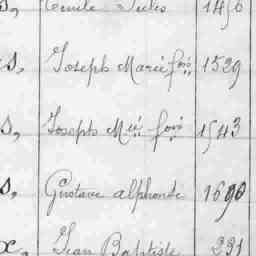 s, Emile Jules 1456
s, Joseph Marie fois 1529
s, Joseph Mie fois 1543
s, Gustave alphonse 1690
x, Jean Baptiste 291